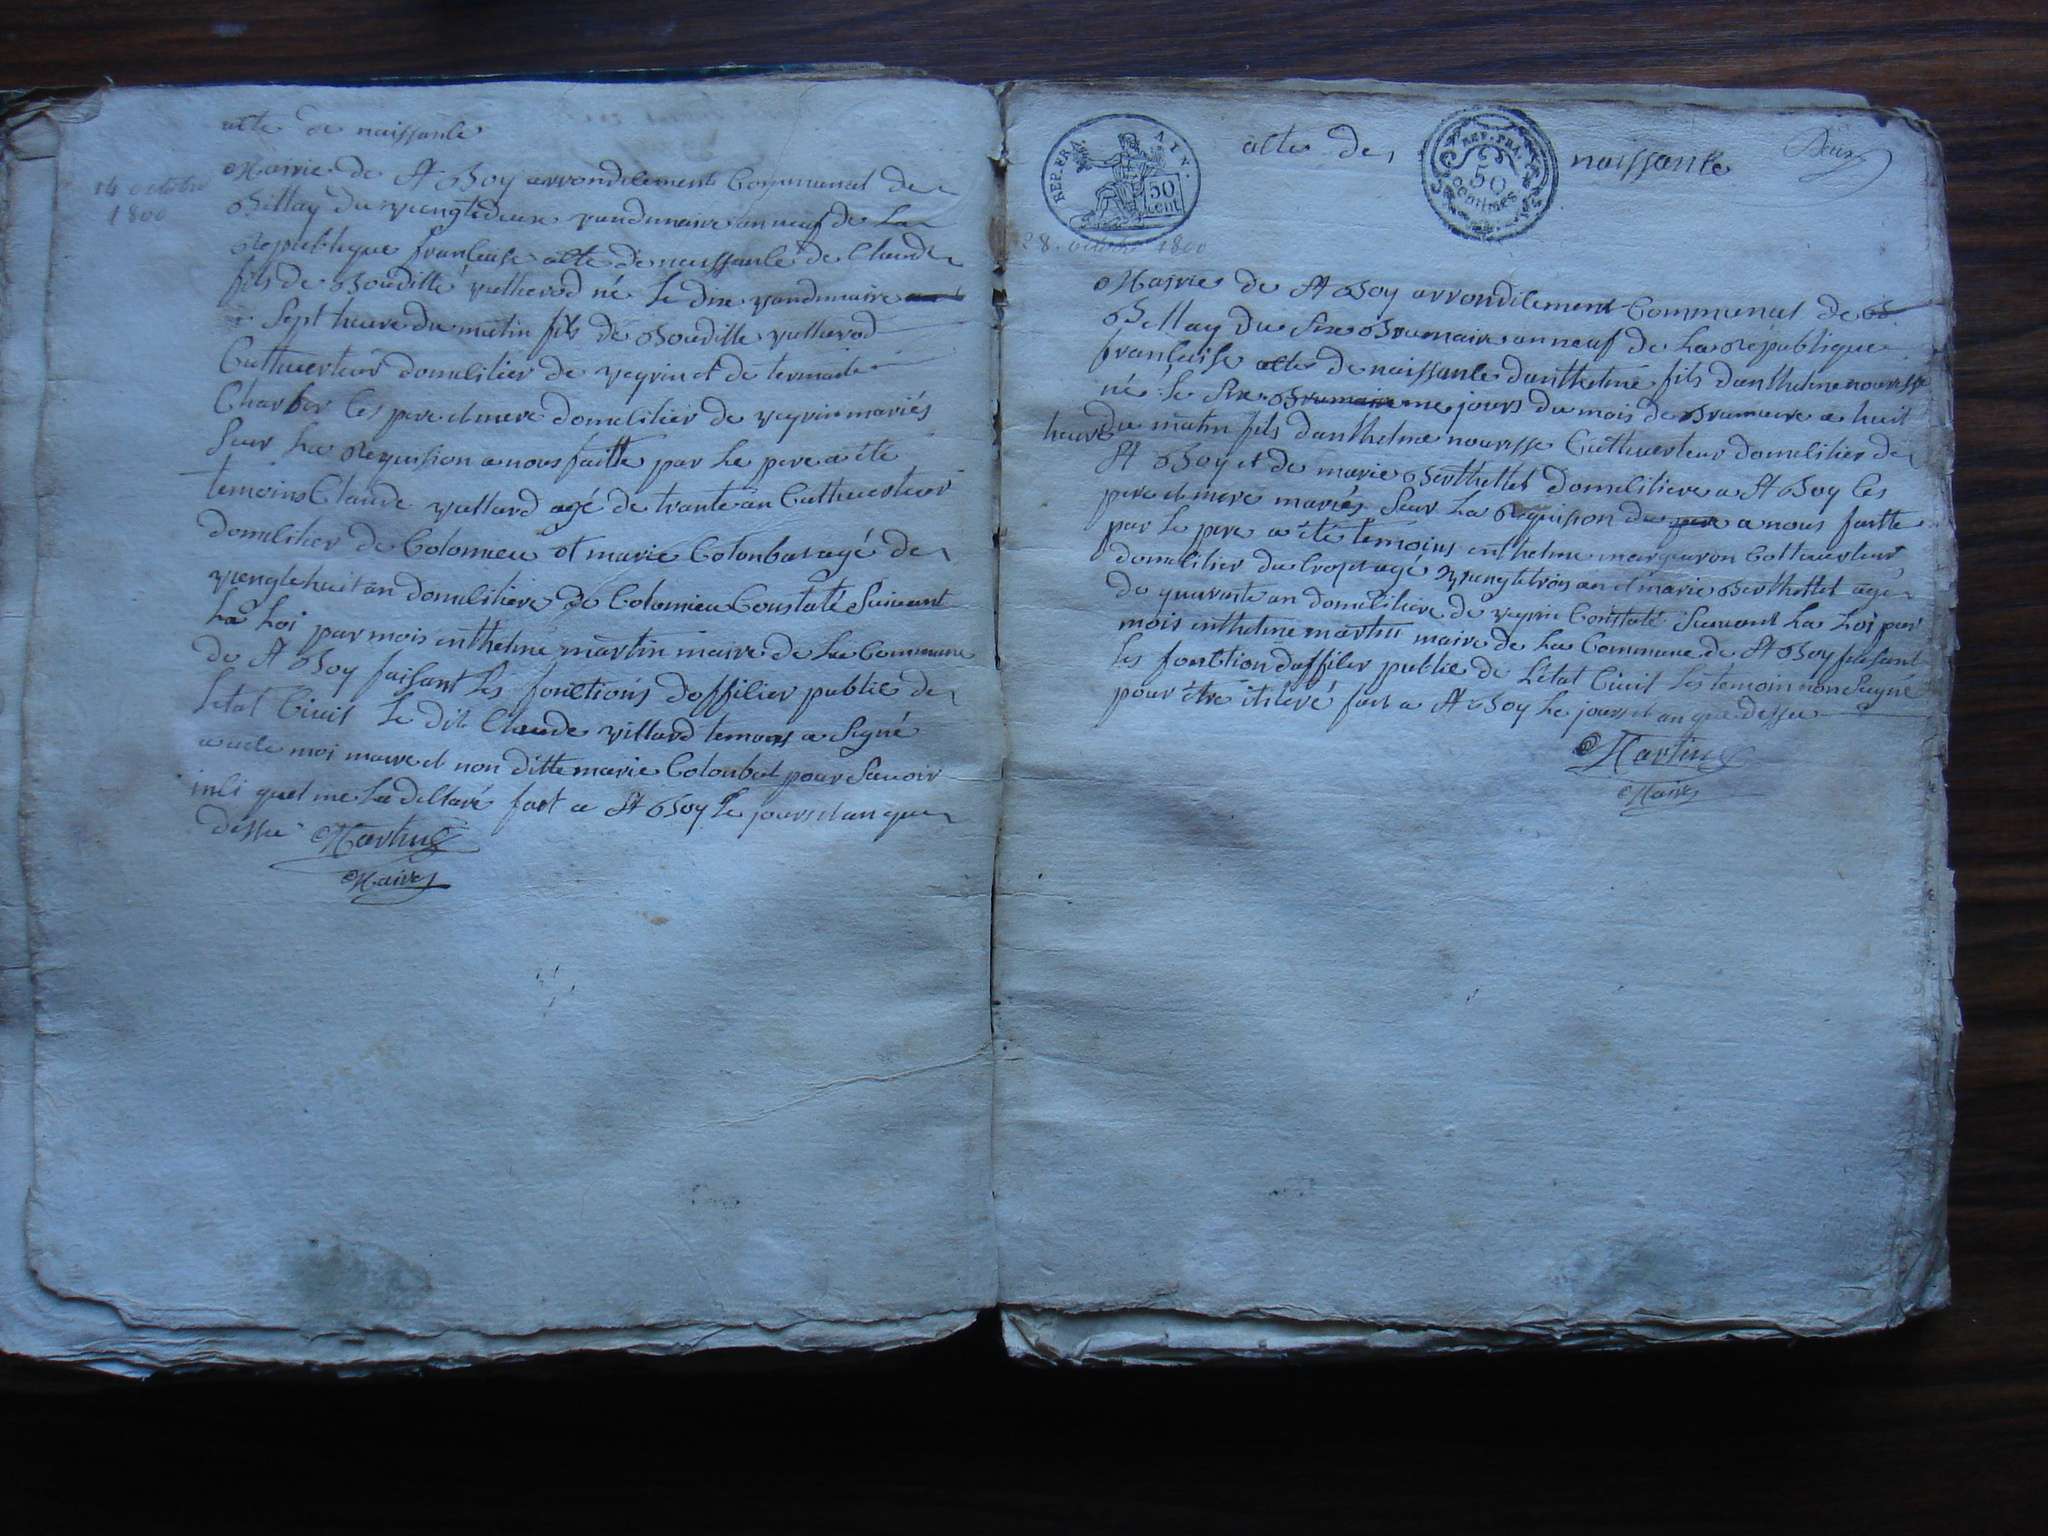 acte de naissance
14 octobre
1800
Mairie de St Boy arrondilement Communal de
Billay du viengtedeux vandumaire an neuf de La
Republique franleise acte de naissance de Claude
fils de Boudille vutherod né Le dix vandimaire
a Sept heure du matin fils de Boudille vutherod
Cuthuerteur domelilier de veyrin et de
Charber les pere et mere domelilier de veyrin mariés
Sur La Requision a nous faitte par Le pere a été
temoins Claude vallard agé de trante an Cuthuerteur
domelilier de Colomieu et marie Colonbat agé de
viengtehuit an domeliliere de Colomieu Constaté Suivant
La Loi par mois enthelme martin maire de La Commune
de St Boy faisant Les fonctions dofficier public de
Letat Civil Le dit Claude villard temoins a Signé
avele moi maire et non ditte marie Colonbat pour Savoir
inli quel me La declaré fait a St Boy Le jours et an que
dessu Martin
Maire
REP. FRA. AIN.
50 cent
acte de
REP. FRA.
50
centimes
naissance
Deux
28 octobre 1800
Mairie de St Boy arrondilement Communal de
Billay du Six Brumaire an neuf de La Republique
franleise acte de naissance danthelme fils danthelme nouresse
né le Six Brumaire me jours du mois de Brumaire a huit
heure du matin fils danthelme nouresse Cuthuerteur domelilier de
St Boy et de marie Berthellet domeliliere a St Boy les
pere et mere mariés Sur La Requision du pere a nous faitte
par Le pere a été temoins enthelme marguron Cotteuerteur
domelilier du Cropt agé viengtetrois an et marie Berthellet agé
de quarante an domeliliere de veyrin Constaté Suivant La Loi par
mois enthelme martin maire de La Commune de St Boy faisant
les fonction dofficier public de Letat Civil Les temoin non Siegné
pour être itileré fait a St Boy Le jours et an que dessu
Martin
Maire